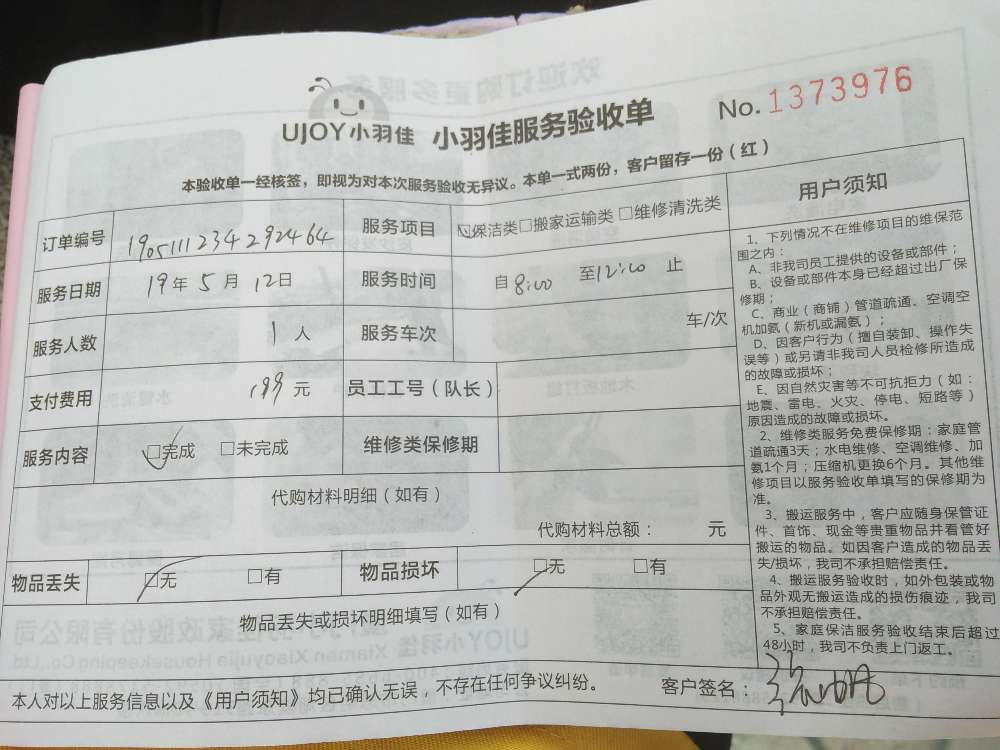 UJOY小羽佳 小羽佳服务验收单 No. 1373976
本验收单一经核签，即视为对本次服务验收无异议。本单一式两份，客户留存一份（红）
订单编号 1905111234292464 服务项目 ☑保洁类□搬家运输类□维修清洗类
服务日期 19年5月12日 服务时间 自8:00 至12:00 止
服务人数 1人 服务车次 车/次
支付费用 199元 员工工号（队长）
服务内容 ☑完成 □未完成 维修类保修期
代购材料明细（如有）
代购材料总额： 元
物品丢失 ☑无 □有 物品损坏 ☑无 □有
物品丢失或损坏明细填写（如有）
用户须知
1、下列情况不在维修项目的维保范
围之内：
A、非我司员工提供的设备或部件；
B、设备或部件本身已经超过出厂保
修期；
C、商业（商铺）管道疏通、空调空
机加氨（新机或漏氨）；
D、因客户行为（擅自装卸、操作失
误等）或另请非我司人员检修所造成
的故障或损坏；
E、因自然灾害等不可抗拒力（如：
地震、雷电、火灾、停电、短路等）
原因造成的故障或损坏。
2、维修类服务免费保修期：家庭管
道疏通3天；水电维修、空调维修、加
氨1个月；压缩机更换6个月。其他维
修项目以服务验收单填写的保修期为
准。
3、搬运服务中，客户应随身保管证
件、首饰、现金等贵重物品并看管好
搬运的物品。如因客户造成的物品丢
失/损坏，我司不承担赔偿责任。
4、搬运服务验收时，如外包装或物
品外观无搬运造成的损伤痕迹，我司
不承担赔偿责任。
5、家庭保洁服务验收结束后超过
48小时，我司不负责上门返工。
本人对以上服务信息以及《用户须知》均已确认无误，不存在任何争议纠纷。 客户签名：